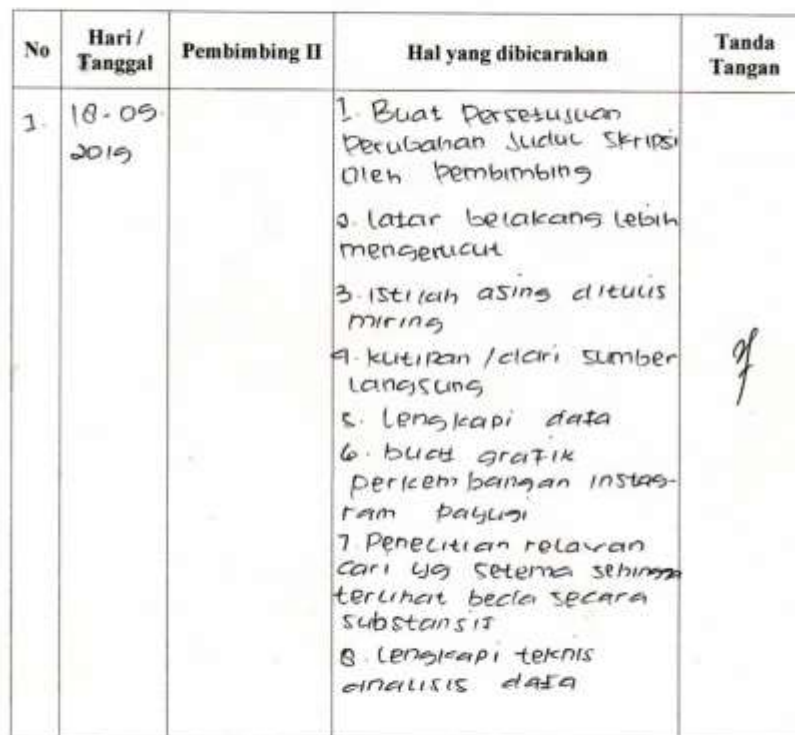 No
Hari /
Tanggal
Pembimbing II
Hal yang dibicarakan
Tanda
Tangan
1.
18-09-
2019
1. Buat Persetujuan
Perubahan Judul Skripsi
Oleh Pembimbing
2. latar belakang lebih
mengerucut
3. istilah asing ditulis
miring
4. kutipan / dari sumber
Langsung
5. Lengkapi data
6. buat grafik
perkembangan instag-
ram payugi
7. Penelitian relavan
cari yg setema sehingga
terlihat beda secara
substansis
8. Lengkapi teknis
analisis data